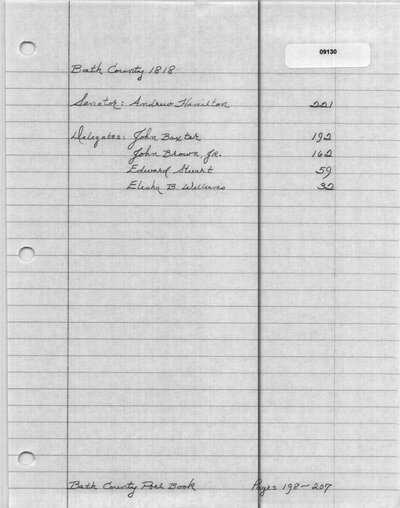 09130
Bath County 1818
Senator: Andrew Hamilton 221
Delegates: John Baxter 192
John Brown, Jr. 162
Edward Stuart 59
Elisha B. Williams 32
Bath County Poll Book Pages 198-207